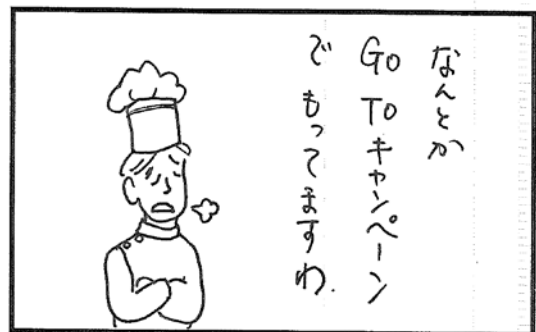 なんとか
GO TOキャンペーン
でもってますわ.